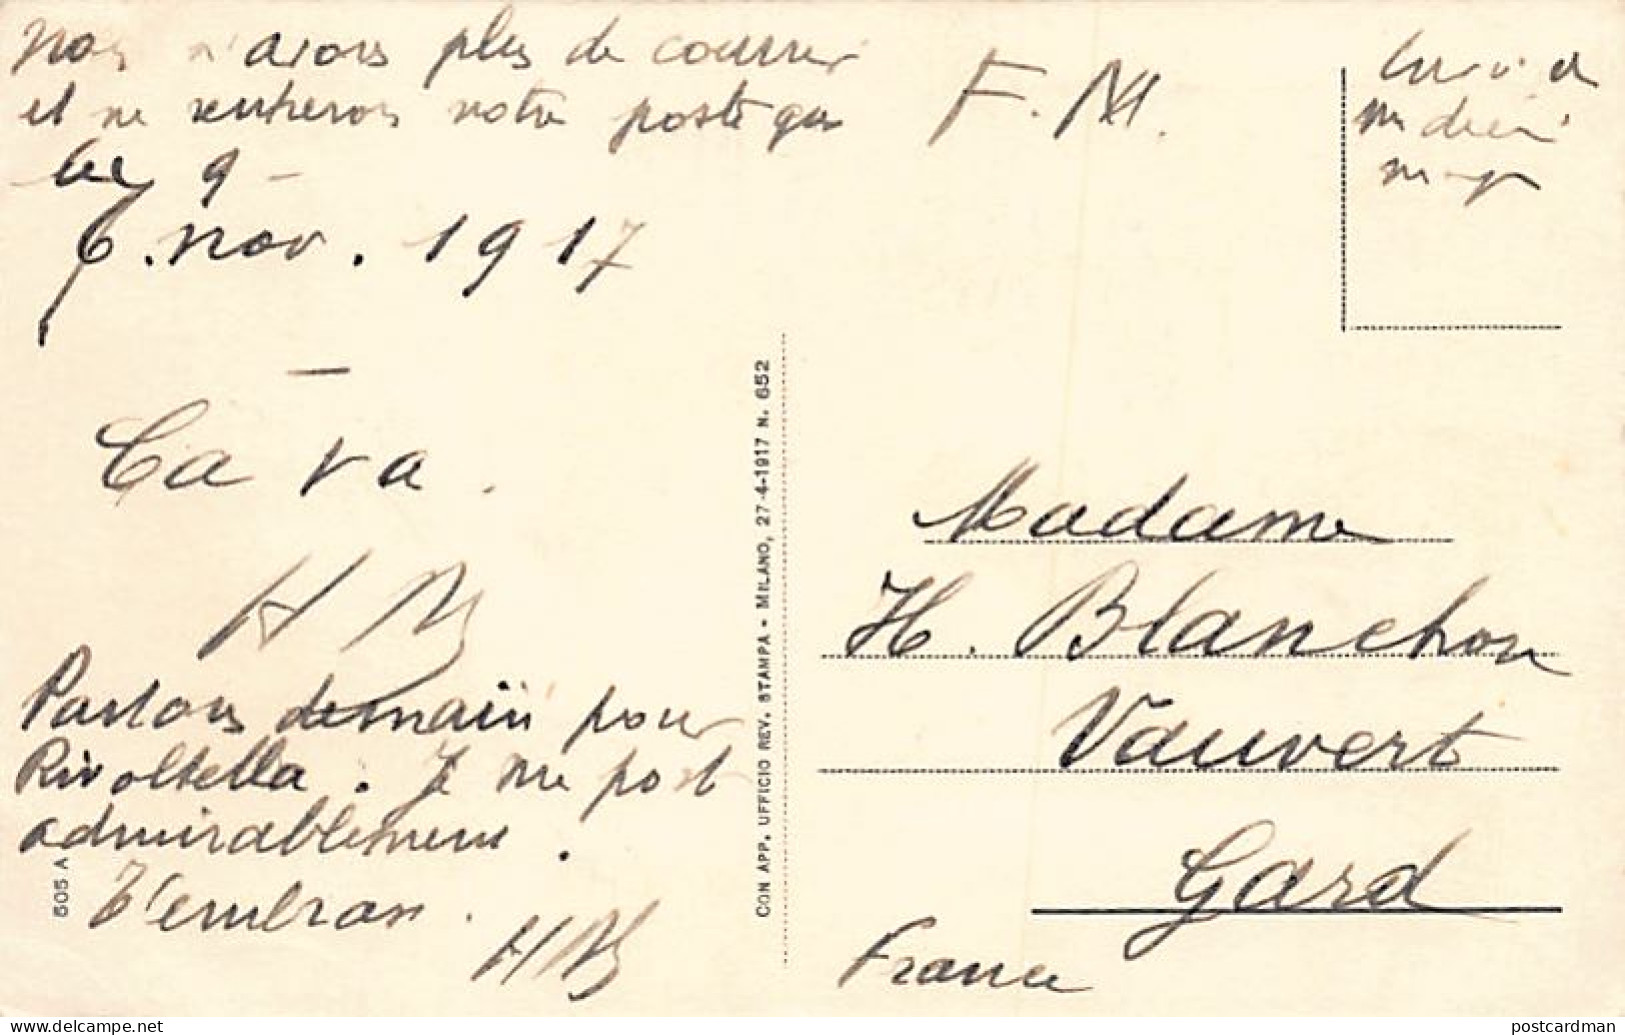 Nous n'avons plus de courrier
et ne rentrerons notre poste que
le 9 -
6. nov. 1917
Ca va.
HB
Partons demain pour
Rivoltella. Je me porte
admirablement.
T'embrasse.
HB
505 A
CON APP. UFFICIO REV. STAMPA - MILANO, 27-4-1917 N. 652
F. M.
Madame
H. Blanchon
Vauvert
Gard
France
www.delcampe.net
postcardman